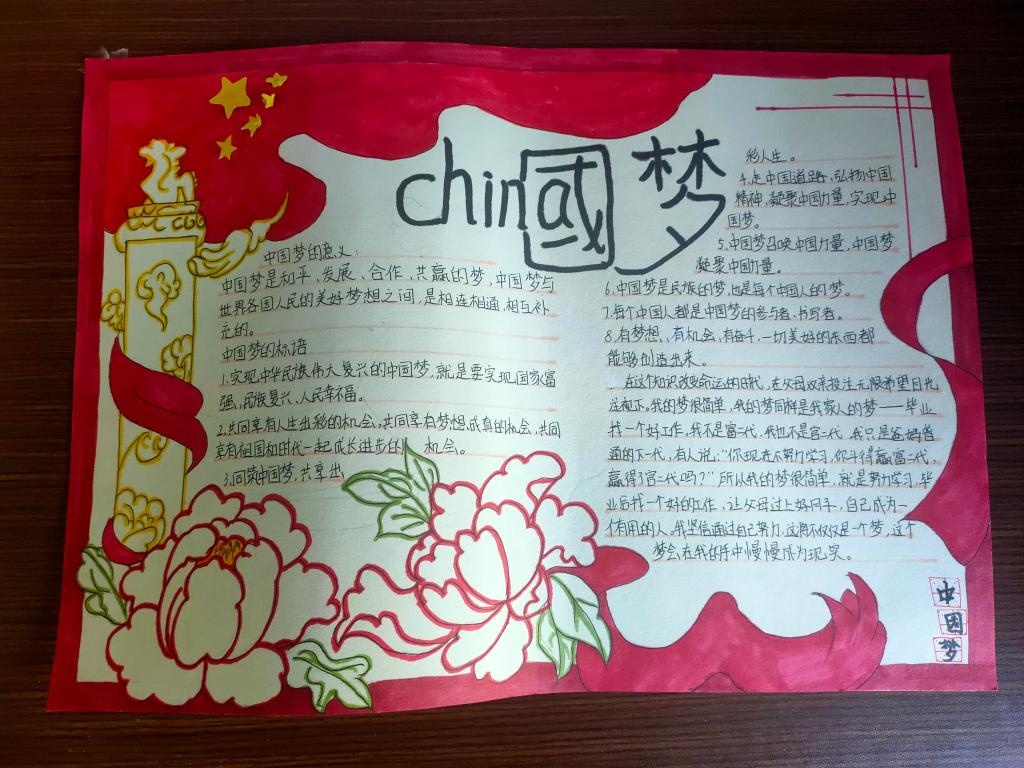 china國梦
中国梦的意义：
中国梦是和平、发展、合作、共赢的梦，中国梦与
世界各国人民的美好梦想之间，是相连相通，相互补
充的。
中国梦的标语
1.实现中华民族伟大复兴的中国梦，就是要实现国家富
强，民族复兴，人民幸福。
2.共同享有人生出彩的机会，共同享有梦想成真的机会，共同
享有祖国和时代一起成长进步的机会。
3.同筑中国梦，共享出
彩人生。
4.走中国道路，弘扬中国
精神，凝聚中国力量，实现中
国梦。
5.中国梦召唤中国力量，中国梦
凝聚中国力量。
6.中国梦是民族的梦，也是每个中国人的梦。
7.每个中国人都是中国梦的参与者，书写者。
8.有梦想，有机会，有奋斗，一切美好的东西都
能够创造出来。
在这个知识改变命运的时代，在父母双亲投注无限希望目光
注视下。我的梦很简单，我的梦同样是我家人的梦——毕业
找一个好工作，我不是富二代，我也不是官二代，我只是爸妈普
通的下一代，有人说：“你现在不努力学习，你斗得赢富二代，
赢得了官二代吗？”所以我的梦很简单，就是努力学习，毕
业后找一个好的工作，让父母过上好日子，自己成为一
个有用的人。我坚信通过自己努力，这将不仅仅是一个梦，这个
梦会在我的手中慢慢成为现实。
中国梦